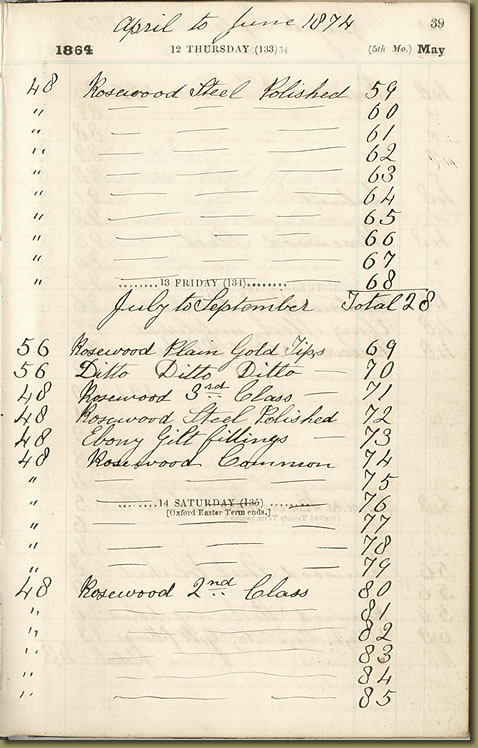 April to June 1874 39
1864 12 THURSDAY (133) (5th Mo.) May
48 Rosewood Steel Polished 59
" — — — 60
" — — — 61
" — — — 62
" — — — 63
" — — — 64
" — — — 65
" — — — 66
" — — — 67
" — — — 68
13 FRIDAY (134)
July to September Total 28
56 Rosewood Plain Gold Tips 69
56 Ditto Ditto Ditto — 70
48 Rosewood 3rd Class — 71
48 Rosewood Steel Polished 72
48 Ebony Gilt fillings — 73
48 Rosewood Common 74
" — — — 75
" — — — 76
14 SATURDAY (135)
[Oxford Easter Term ends.]
" — — — 77
" — — — 78
" — — — 79
48 Rosewood 2nd Class 80
" — — — 81
" — — — 82
" — — — 83
" — — — 84
" — — — 85